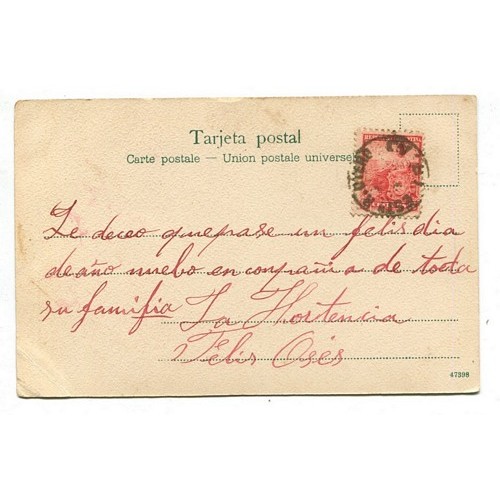 Tarjeta postal
Carte postale — Union postale universe
Le deceo que pase un felis dia
de año nuebo en conpañia de toda
su familia La Hortencia
Felis Osés
47398